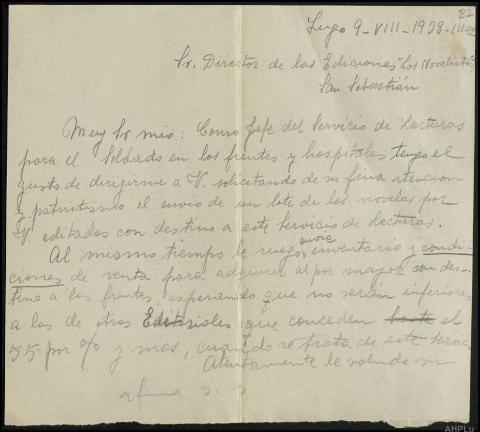 82
Lugo 9-VIII-1938-III
Sr. Director de las Ediciones "Los Novelistas"
San Sebastián
Muy Sr mio: Como Jefe del Servicio de Lecturas
para el Soldado en los frentes y hospitales tengo el
gusto de dirigirme a V. solicitando de su fina atencion
y patriotismo el envio de un lote de las novelas por
V. editadas con destino a este Servicio de lecturas.
Al mismo tiempo le ruego envie inventario y condi-
ciones de venta para adquirir al por mayor con des-
tino a los frentes, esperando que no serán inferiores
a las de otras Editoriales que conceden hasta el
55 por % y mas, cuando se trata de este servicio
Atentamente le saluda su
afmo s. s
AHPLu